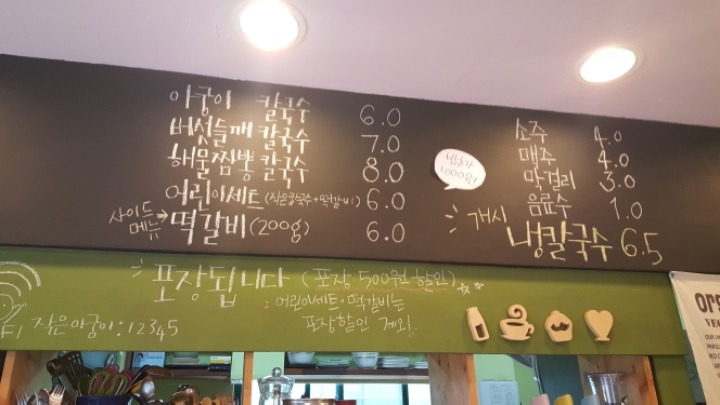 아궁이 칼국수 6.0
버섯들깨 칼국수 7.0
해물짬뽕 칼국수 8.0
어린이세트(작은칼국수+떡갈비) 6.0
사이드 메뉴 → 떡갈비(200g) 6.0
1000원
소주 4.0
맥주 4.0
막걸리 3.0
음료수 1.0
개시 냉칼국수 6.5
포장됩니다 (포장 500원 할인)
: 어린이세트·떡갈비는
포장할인 제외!
FI 작은아궁이:12345